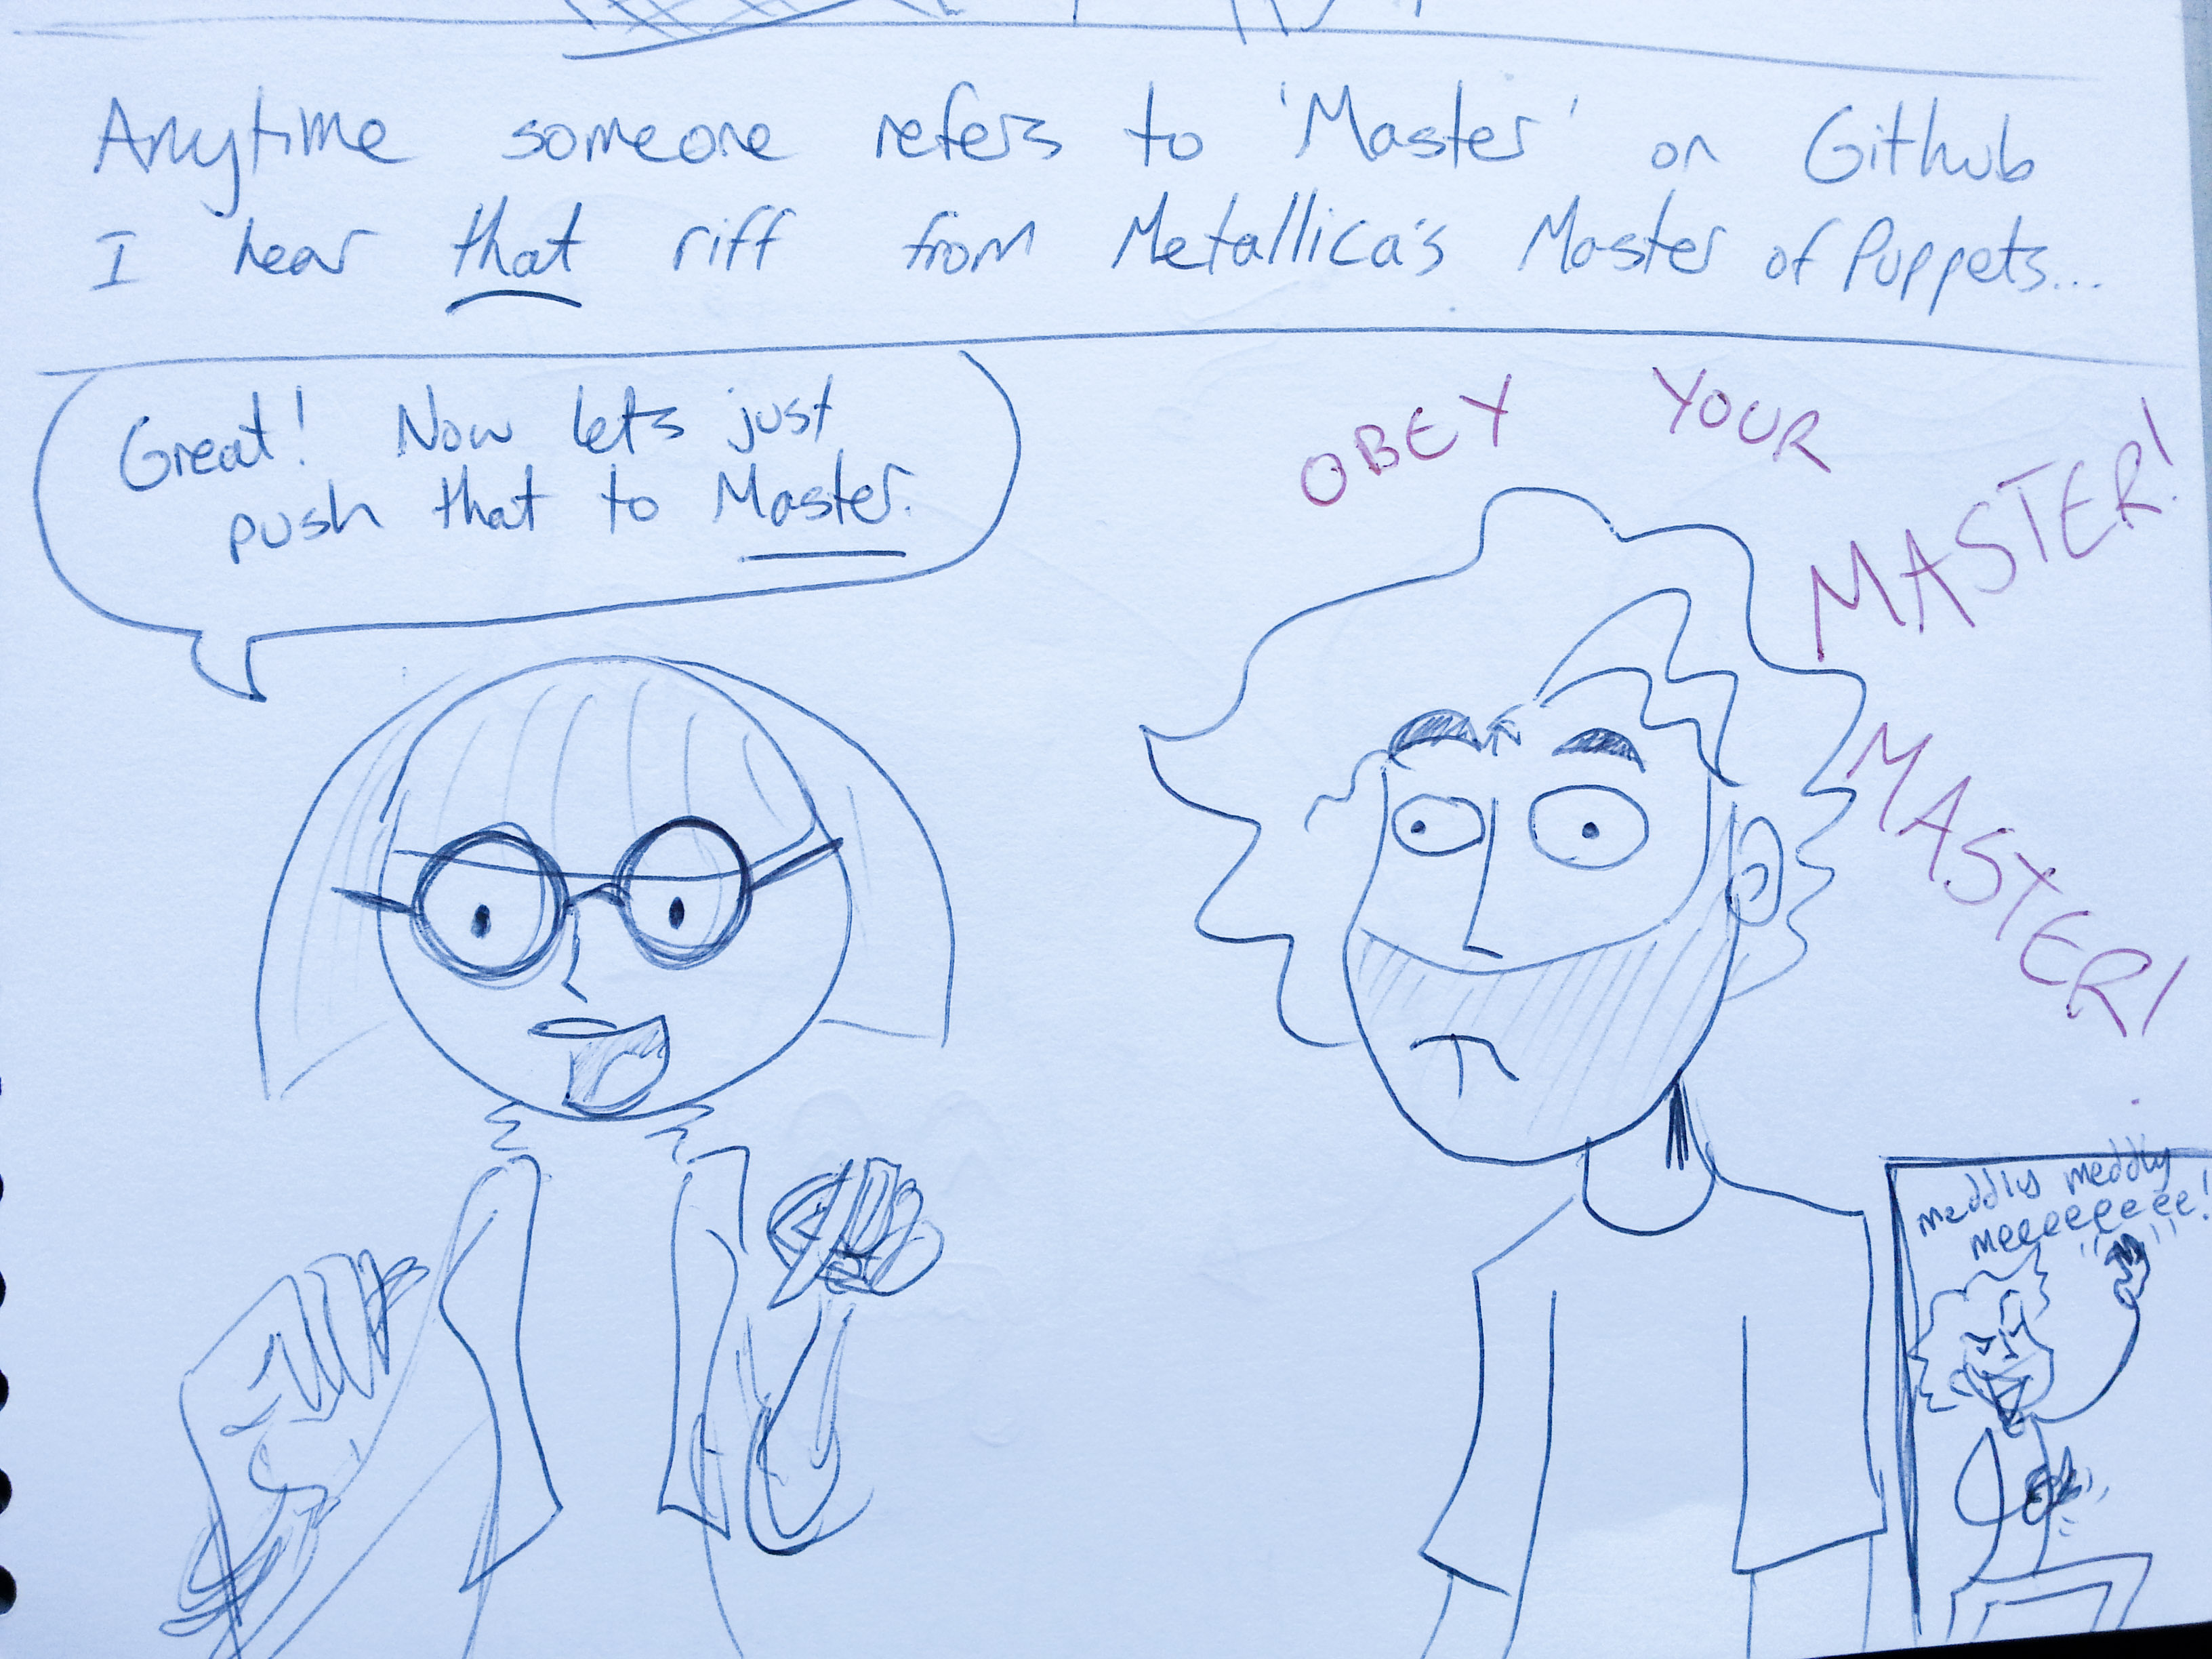 Anytime someone refers to 'Master' on Github
I hear that riff from Metallica's Master of Puppets...
Great! Now lets just
push that to Master.
OBEY YOUR
MASTER!
MASTER!
meddly meddly
meeeeeeee!